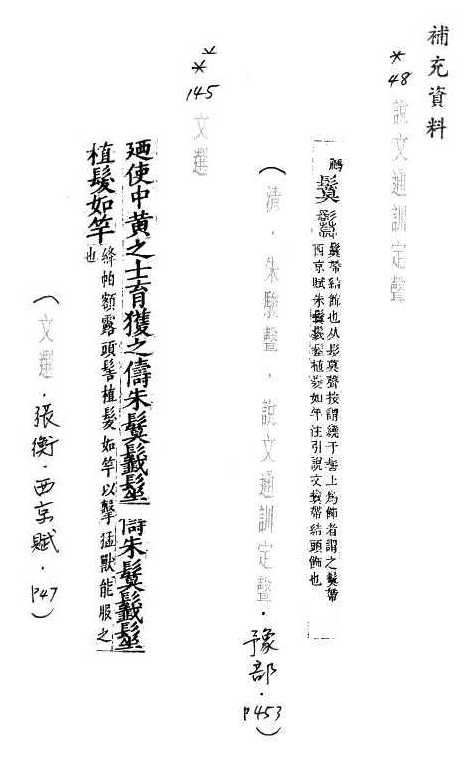 補充資料
*48 說文通訓定聲
鬕 帶結飾也从髟莫聲按謂繞于髻上為飾者謂之鬕帶
西京賦朱鬕 植髮如竿注引說文鬕帶結頭飾也
(清.朱駿聲.說文通訓定聲.豫部.P453)
**145 文選
迺使中黃之士育獲之儔朱鬕䰐髽 儔朱鬕䰐髽
植髮如竿
絳帕額露頭髻植髮如竿以擊猛獸能服之
也
(文選.張衡.西京賦.P47)